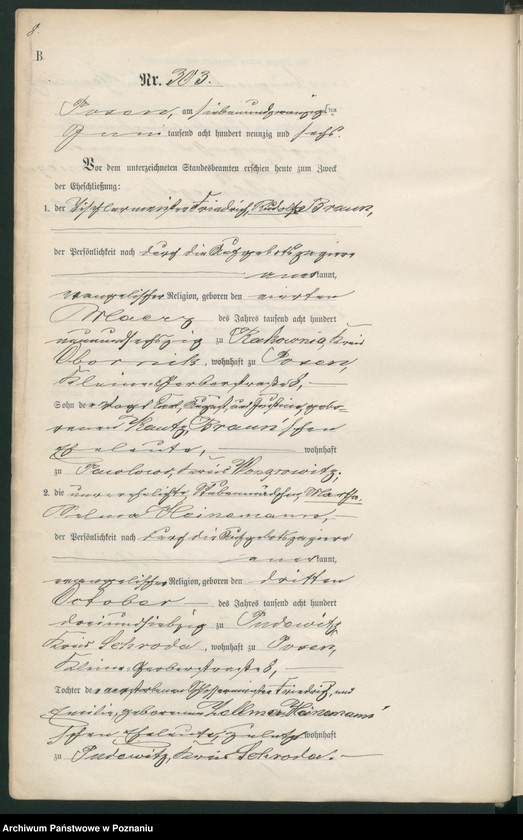 8.
B.
Nr. 303.
Posen, am siebenundzwanzigsten
Juni tausend acht hundert neunzig und sechs.
Vor dem unterzeichneten Standesbeamten erschien heute zum Zweck
der Eheschließung:
1. der Tischlermeister Friedrich, Rudolf Braun,
der Persönlichkeit nach durch die Aufgebotspapiere
anerkannt,
evangelischer Religion, geboren den vierten
Maerz des Jahres tausend acht hundert
neunundsechzig zu Rakownia, Kreis
Obornik, wohnhaft zu Posen,
Kleine Gerberstraße 8,
Sohn der Vogt August und Justine, gebo-
renen Kautz, Braun'schen
Eheleute, wohnhaft
zu Pawlowo, Kreis Wongrowitz;
2. die unverehelichte Stubenmädchen, Martha,
Selma Heinemann,
der Persönlichkeit nach durch die Aufgebotspapiere
anerkannt,
evangelischer Religion, geboren den dritten
October des Jahres tausend acht hundert
dreiundsiebzig zu Pudewitz,
Kreis Schroda, wohnhaft zu Posen,
Kleine Gerberstraße 8,
Tochter der verstorbenen Schlossermeister Friedrich, und
Emilie, geborenen Zellmer, Heinemann'
schen Eheleute, zuletzt wohnhaft
zu Pudewitz, Kreis Schroda.
Archiwum Państwowe w Poznaniu